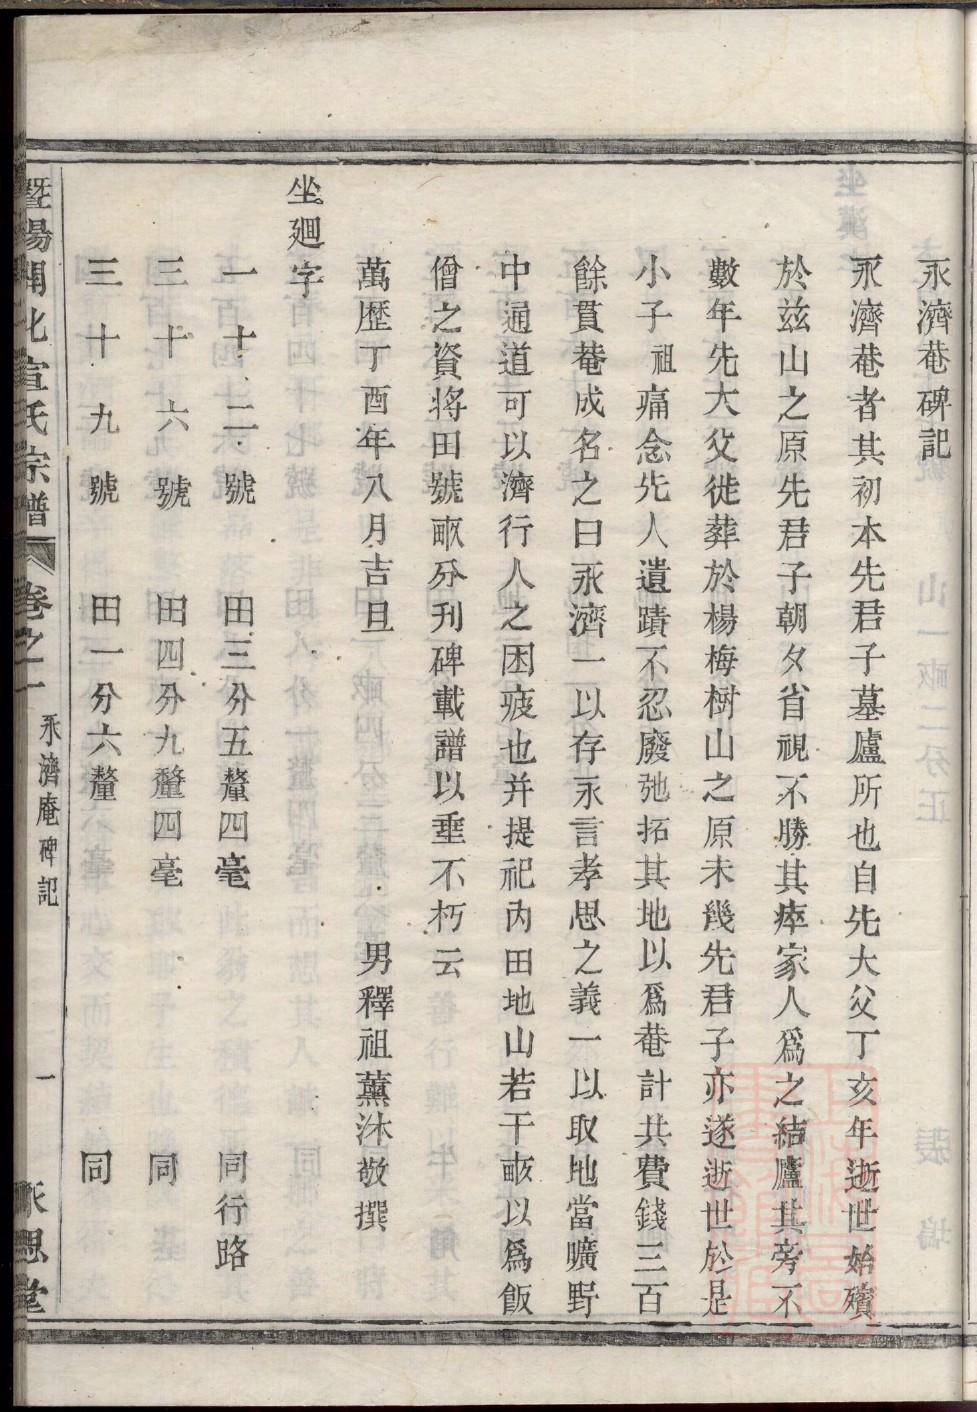 永濟菴碑記
永濟菴者其初本先君子墓廬所也自先大父丁亥年逝世始殯
於玆山之原先君子朝夕省視不勝其瘁家人爲之結廬其旁不
數年先大父徙葬於楊梅樹山之原未幾先君子亦遂逝世於是
小子祖痛念先人遺蹟不忍廢弛拓其地以爲菴計共費錢三百
餘貫菴成名之曰永濟一以存永言孝思之義一以取地當曠野
中通道可以濟行人之困疲也并提祀內田地山若干畝以爲飯
僧之資將田號畝分刊碑載譜以垂不朽云
萬歷丁酉年八月吉旦 男釋祖薰沐敬撰
坐廽字
一十二號 田三分五釐四毫 同行路
三十六號 田四分九釐四毫 同
三十九號 田一分六釐 同
暨陽開化宣氏宗譜 卷之一 永濟庵碑記 一 永思堂